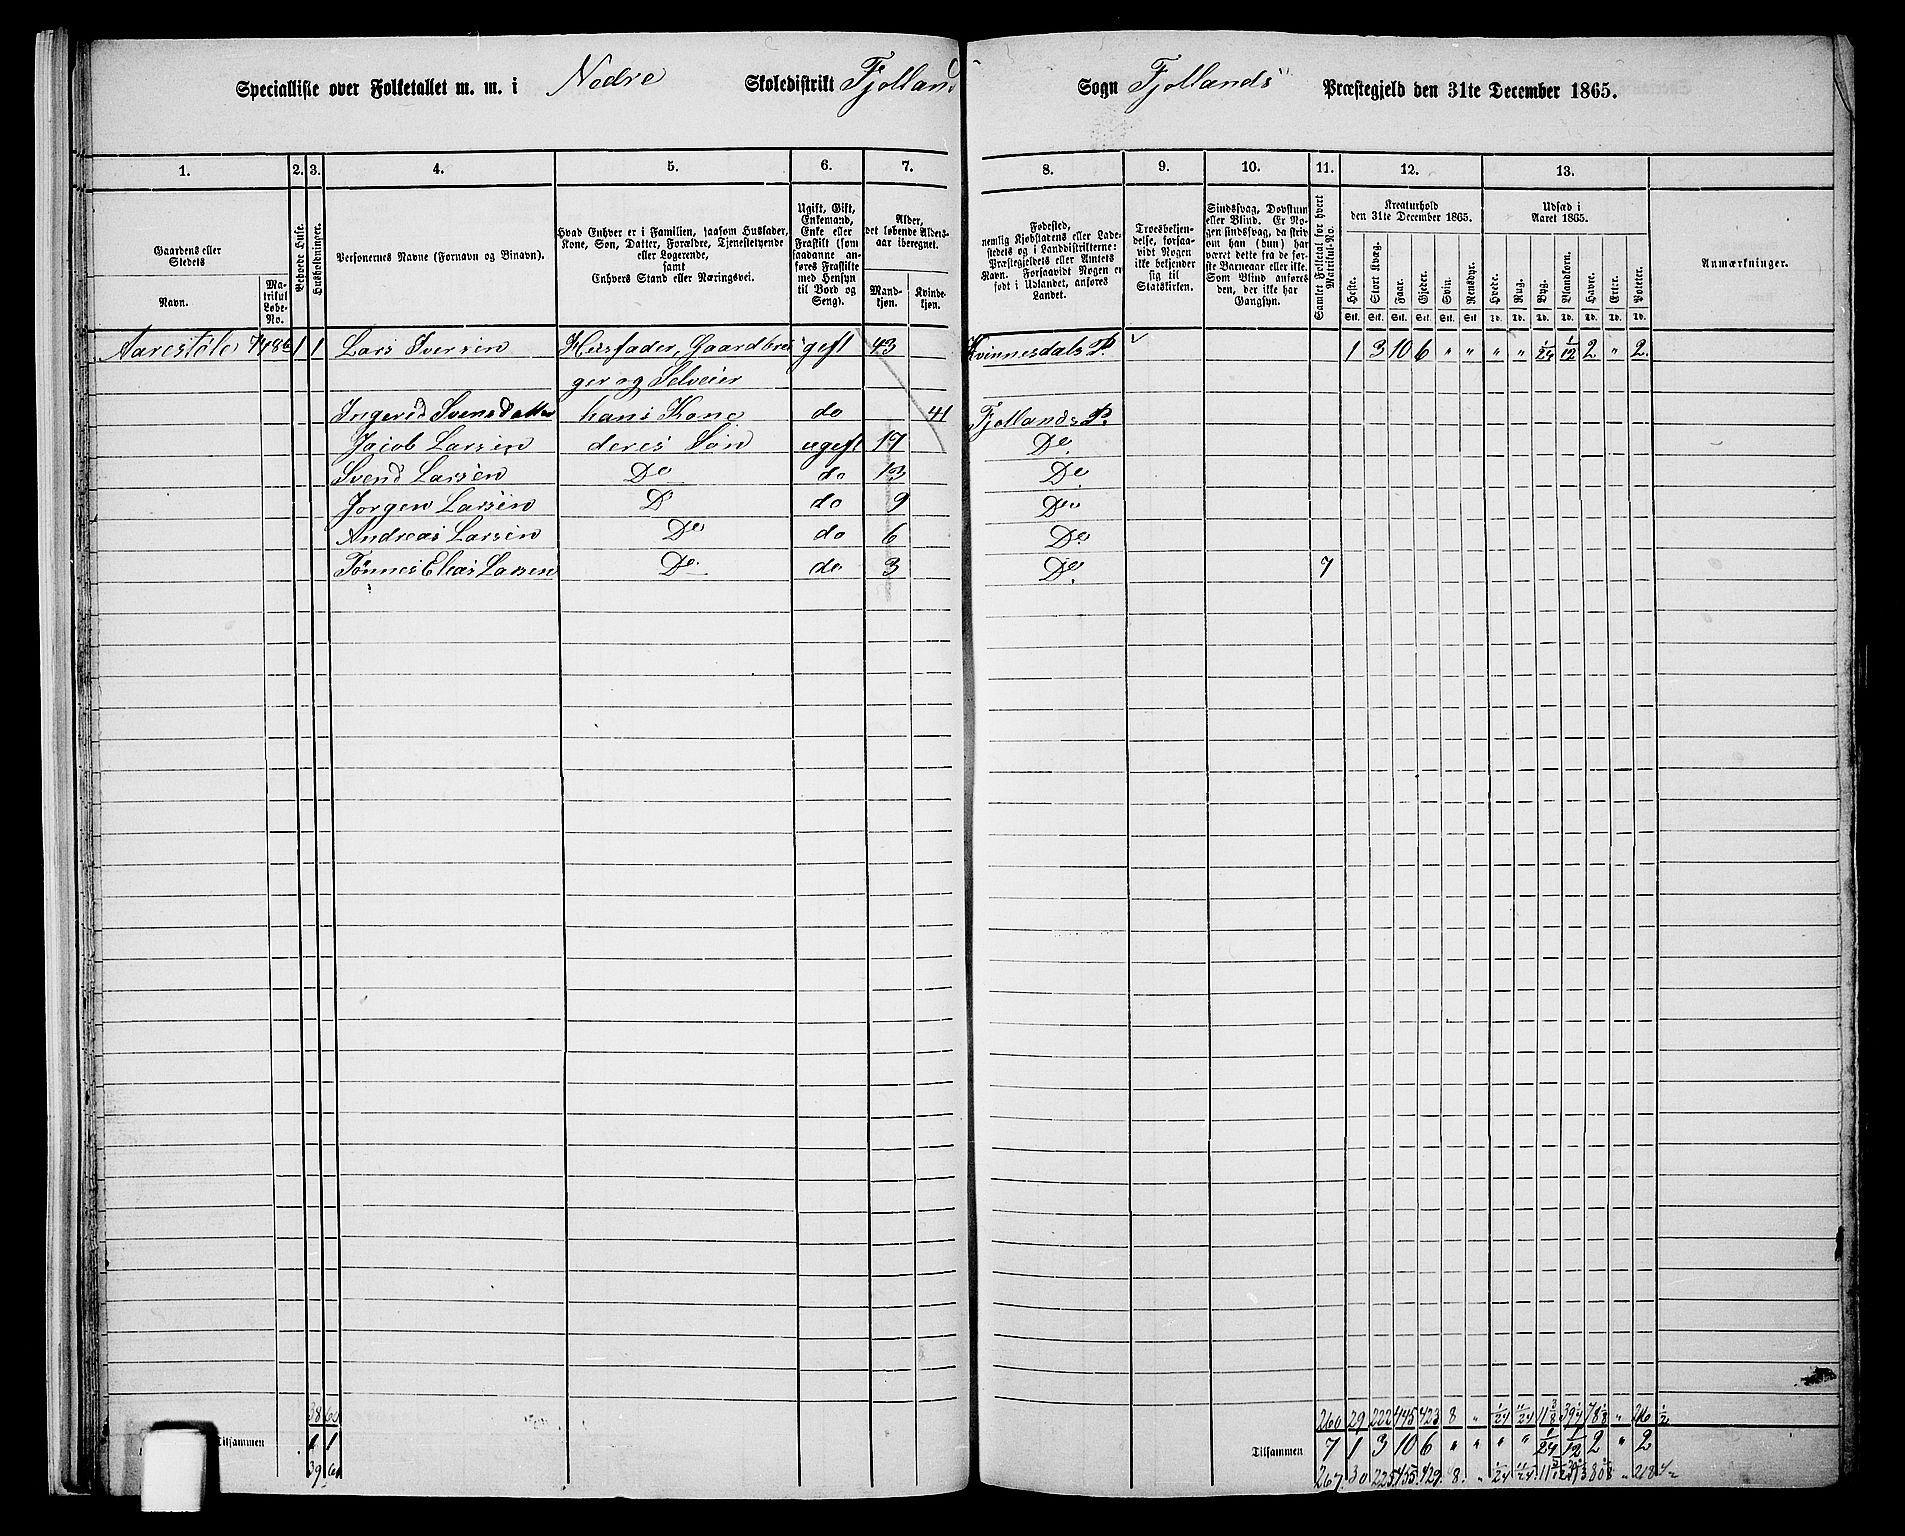 Specialliste over Folketallet m. m. i Nedre Skoledistrikt Fjotland Sogn Fjotlands Præstegjeld den 31te December 1865.
1. 2. 3. 4. 5. 6. 7. 8. 9. 10. 11. 12. 13.
Gaardens eller Stedets
Navn.
Matrikul Løbe-No.
Beboede Huse.
Husholdninger.
Personernes Navne (Fornavn og Binavn).
Hvad Enhver er i Familien, saasom Husfader,
Kone, Søn, Datter, Forældre, Tjenestetyende
eller Logerende,
samt
Enhvers Stand eller Næringsvei.
Ugift, Gift,
Enkemand,
Enke eller
Fraskilt (som
saadanne anføres
Fraskilte
med Hensyn
til Bord og
Seng).
Alder,
det løbende Aldersaar
iberegnet.
Mandkjøn.
Kvindekjøn.
Fødested,
nemlig Kjøbstadens eller Ladestedets
og i Landdistrikterne:
Præstegjeldets eller Amtets
Navn. Forsaavidt Nogen er
født i Udlandet, anføres
Landet.
Troesbekjendelse,
forsaavidt
Nogen
ikke bekjender
sig til
Statskirken.
Sindssvag, Døvstum
eller Blind. Er Nogen
sindssvag, da skriv
om han (hun) har
været dette fra de første
Barneaar eller ikke.
Som Blind anføres
den, der ikke har
Gangsyn.
Samlet Folketal for hvert Matrikul-No.
Kreaturhold
den 31te December 1865.
Heste. Stort Kvæg. Faar. Gjeder. Svin. Rensdyr.
Stk. Stk. Stk. Stk. Stk. Stk.
Udsæd i
Aaret 1865.
Hvede. Rug. Byg. Blandkorn. Havre. Erter. Poteter.
Td. Td. Td. Td. Td. Td. Td.
Anmærkninger.
1 1 Lars Iversen Husfader, Gaardbru gift 43 Kvinnesdals P. 1 3 10 6 " " " " 1/24 1/12 2 " 2
ger og Selveier
Ingerid Svensdatter hans Kone do 41 Fjotlands P.
Jacob Larsen deres Søn ugift 17 Do
Svend Larsen Do do 13 Do
Jørgen Larsen D do 9 Do
Andreas Larsen Do do 6 Do
Tønnes Elias Larsen Do do 3 Do 7
38 60 260 29 222 445 423 8 " 1/24 11/24
Tilsammen 1 1 Tilsammen 7 1 3 10 6 " " " " 1/24 1/12 2 " 2
39 61 267 30 225 455 429 8 " 1/24 11/24